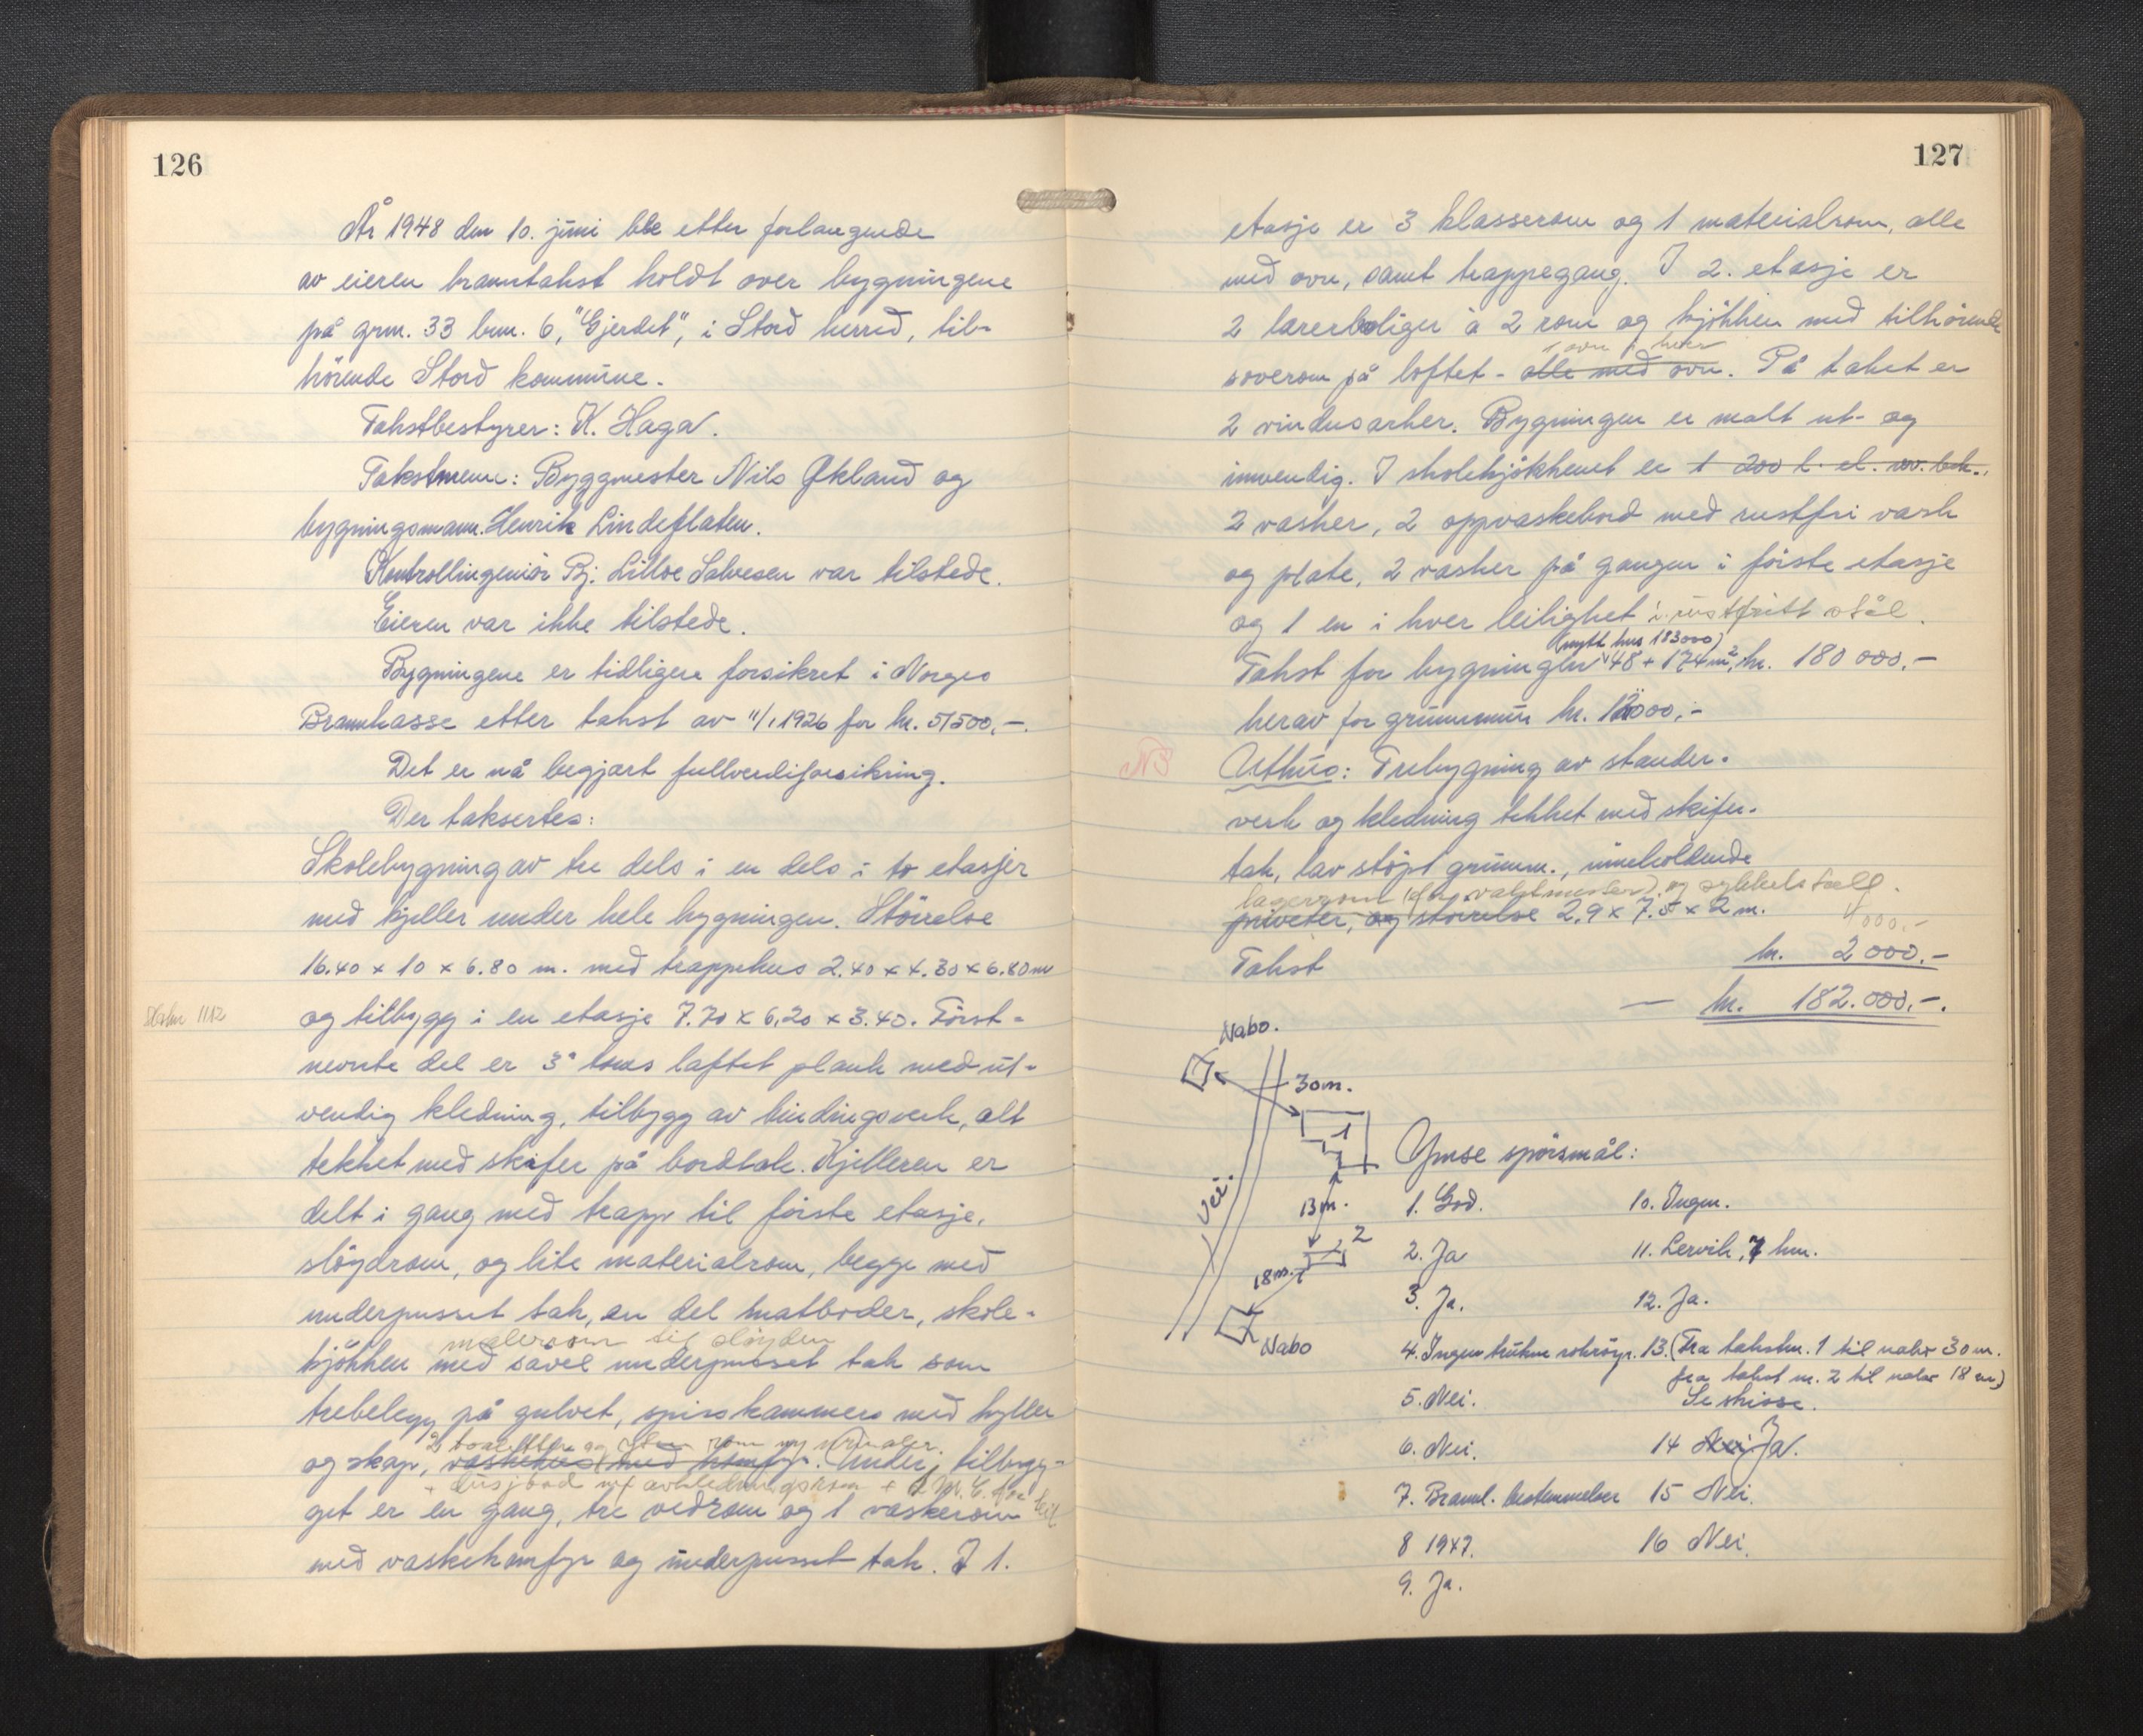 126
År 1948 den 10. juni ble etter forlangende
av eieren branntakst holdt over bygningene
på grm. 33 brm. 6, "Gjerdet", i Stord herred, til-
hörende Stord kommune.
Takstbestyrer: K. Haga.
Takstmenn: Byggmester Nils Økland og
bygningsmann Henrik Lindeflaten.
Kontrollingeniör Bj. Lilloe Salvesen var tilstede.
Eieren var ikke tilstede.
Bygningene er tidligere forsikret i Norges
Brannkasse etter takst av 11/1 1926 for kr. 51500,-.
Det er nå begjært fullverdiforsikring.
Der taksertes:
Skolebygning av tre dels i en dels i to etasjer
med kjeller under hele bygningen. Störrelse
16.40 x 10 x 6.80 m. med trappehus 2.40 x 4.30 x 6.80 m
og tilbygg i en etasje 7.70 x 6,20 x 3.40. Först-
nevnte del er 3" toms laftet plank med ut-
vendig kledning, tilbygg av bindingsverk, alt
tekket med skifer på bordtak. Kjelleren er
delt i gang med trapp til förste etasje,
slöydrom, og lite materialrom, begge med
underpusset tak, en del matboder, skole-
malerom til slöyden
kjökken med såvel underpusset tak som
trebelegg på gulvet, spiskammers med hyller
2 toaletter og urinaler.
og skap, vaskehus med komfyr. Under tilbyg-
+ dusjbad m/ avkledningsrom +
get er en gang, tre vedrom og 1 vaskerom
med vaskekomfyr og underpusset tak. I 1.
127
etasje er 3 klasserom og 1 materialrom, alle
med ovn, samt trappegang. I 2. etasje er
2 lærerboliger à 2 rom og kjökken med tilhörende
1 ovn i hver
soverom på loftet - alle med ovn. På taket er
2 vindusarker. Bygningen er malt ut- og
innvendig. I skolekjökkenet er 1 200 l. el. vv. beh.,
2 vasker, 2 oppvaskebord med rustfri vask
og plate, 2 vasker på gangen i förste etasje
og 1 en i hver leilighet i rustfritt stål.
(nytt hus 183000)
Takst for bygningen 48 + 174 m², kr. 180 000.-
herav for grunnmur kr. 12000,-
NB
Uthus: Trebygning av stender-
verk og kledning tekket med skifer-
tak, lav stöpt grunnm., inneholdende
lagerrom (f. vaktmester) og sykkelstall.
priveter, og störrelse 2,9 x 7.5 x 2 m.
4000,-
Takst kr. 2000.-
- kr. 182.000.-.
Nabo.
30m.
1
Vei.
13m.
2
18m.
Nabo
Ymse spörsmål:
1. God.
2. Ja
3. Ja.
5. Nei.
6. Nei.
7. Brannl. bestemmelser
8 1947.
9. Ja.
10. Ingen.
11. Lervik, 7 km.
12. Ja.
13. (Fra takstnr. 1 til nabo 30 m.
fra takst nr. 2 til nabo 18 m)
Se skisse.
14 Nei Ja.
15 Nei.
16 Nei.